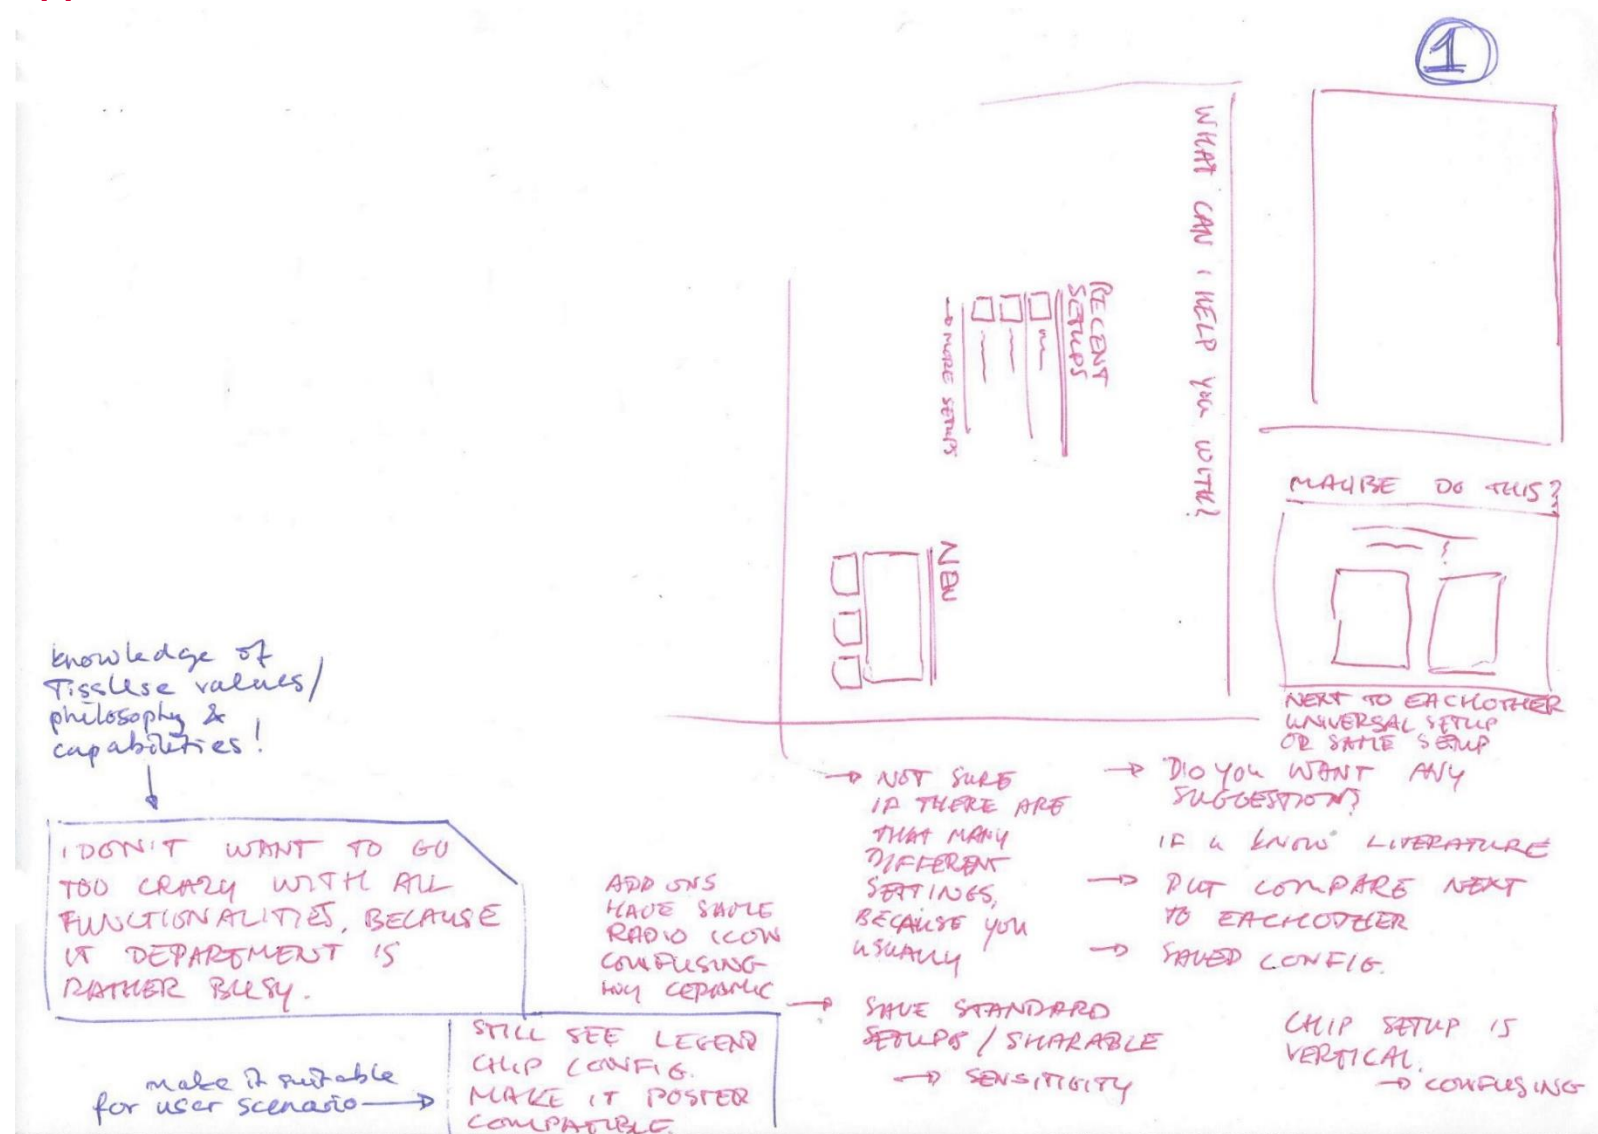 1
WHAT CAN I HELP YOU WITH?
RECENT
SETUPS
→ MORE SETUPS
NEW
MAYBE DO THIS?
NEXT TO EACHOTHER
UNIVERSAL SETUP
OR SAME SETUP
knowledge of
Tissuse values/
philosophy &
capabilities!
I DON'T WANT TO GO
TOO CRAZY WITH ALL
FUNCTIONALITIES, BECAUSE
IT DEPARTMENT IS
RATHER BUSY.
make it suitable
for user scenario →
STILL SEE LEGEND
CHIP CONFIG.
MAKE IT POSTER
COMPATIBLE.
ADD ONS
HAVE SAME
RADIO ICON
CONFUSING
→ NOT SURE
IF THERE ARE
THAT MANY
DIFFERENT
SETTINGS,
BECAUSE YOU
USUALLY
→ SAVE STANDARD
SETUPS / SHARABLE
→ SENSITIGITY
→ DO YOU WANT ANY
SUGGESTION?
IF U KNOW LITERATURE
→ PUT COMPARE NEXT
TO EACHOTHER
→ SAVED CONFIG.
CHIP SETUP IS
VERTICAL.
→ CONFUSING